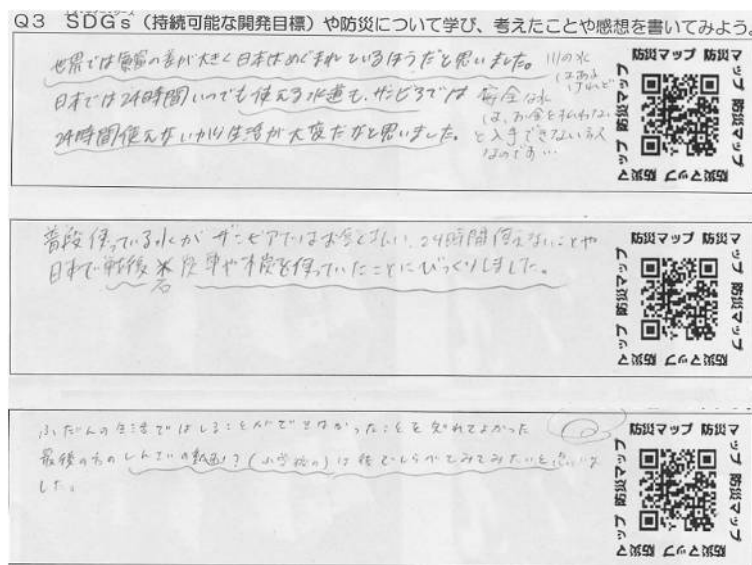 Q3 SDGs（持続可能な開発目標）や防災について学び、考えたことや感想を書いてみよう。
世界では貧富の差が大きく日本はめぐまれているほうだと思いました。
日本では24時間いつでも使える水道も、ザンビアでは
24時間使えないから生活が大変だなと思いました。
川の水
はある
けれど
安全な水
は、お金を払わない
と入手できない
防災マップ 防災マップ 防災マップ 防災マップ
普段使っている水がザンビアではお金とはらい、24時間使えないことや
日本で戦後 炭車や木炭を使っていたことにびっくりしました。
石
防災マップ 防災マップ 防災マップ 防災マップ
ふだんの生活ではしることができなかったことを知れてよかった
最後の方のしんさいの動画？（小学校の）は後でしらべてみてみたいと思いま
した。
防災マップ 防災マップ 防災マップ 防災マップ